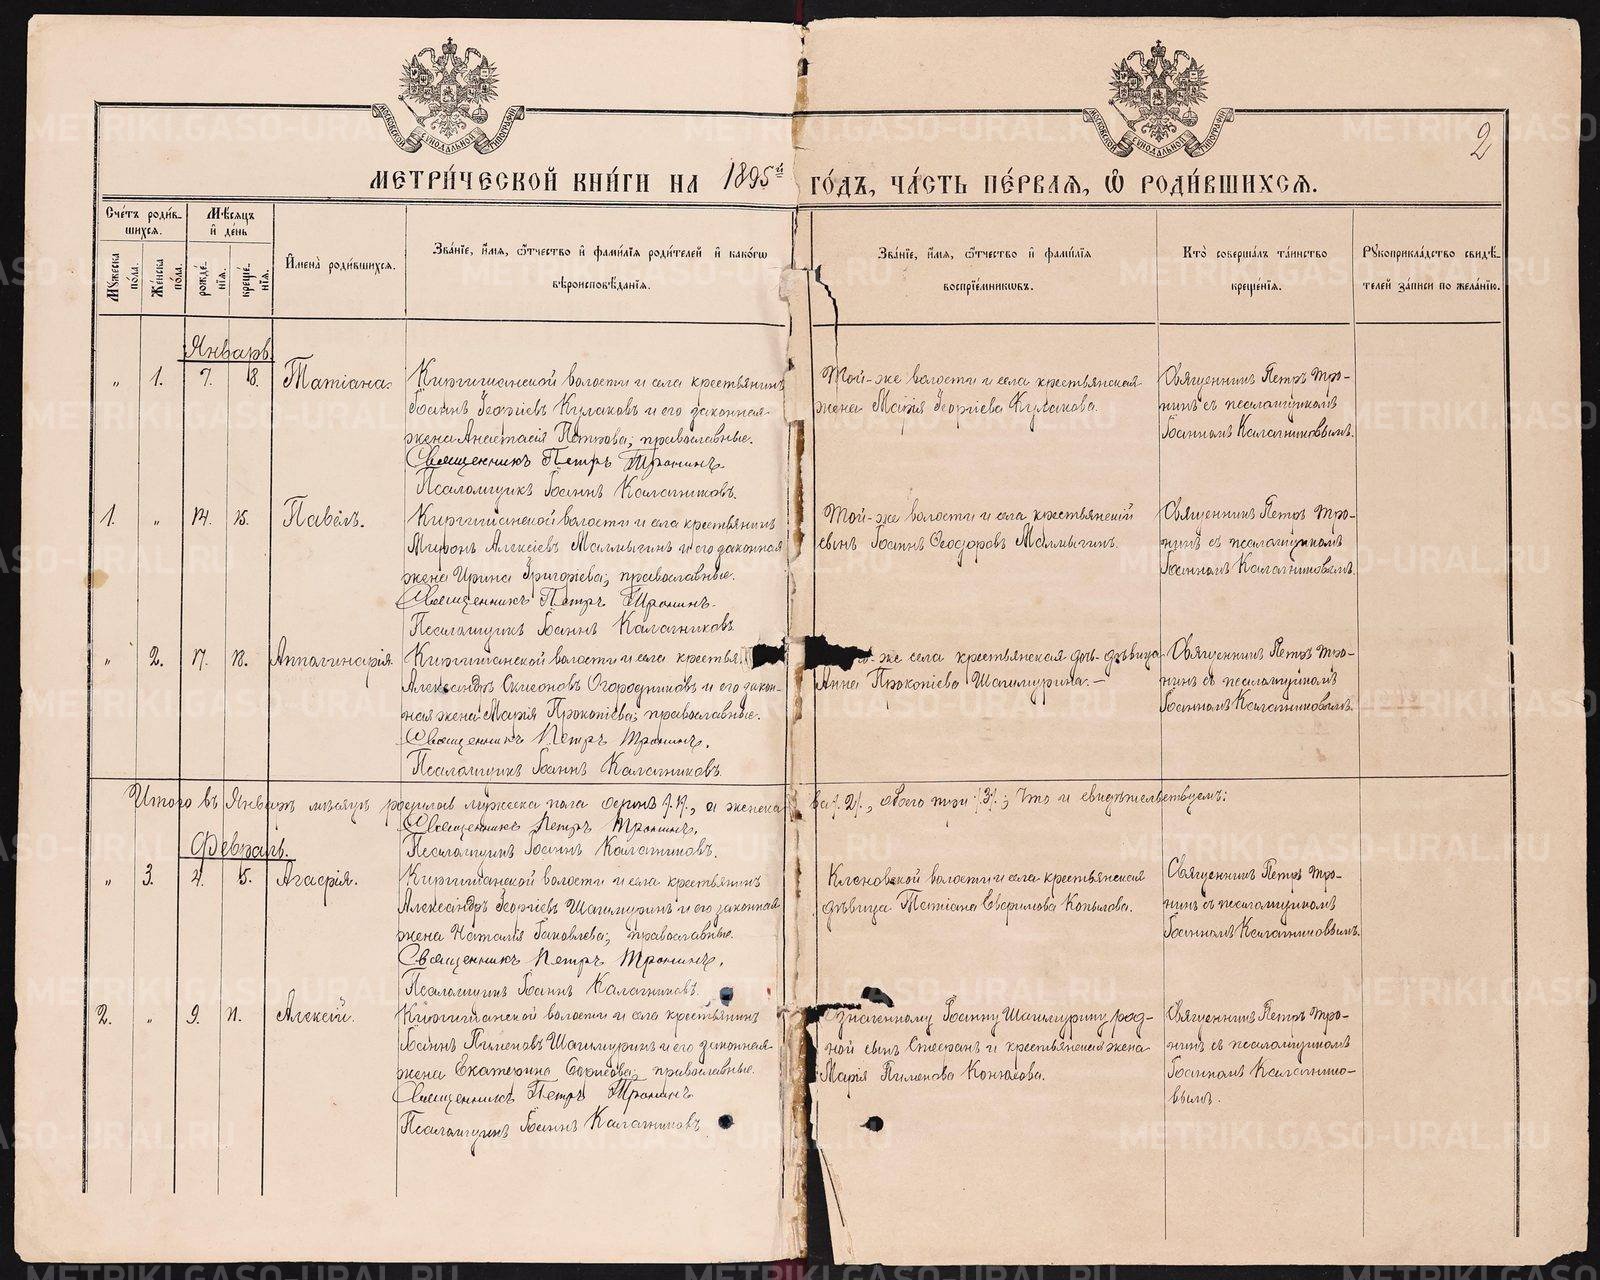 МОСКОВСКОЙ СѴНОДАЛЬНОЙ ТИПОГРАФІИ
МОСКОВСКОЙ СѴНОДАЛЬНОЙ ТИПОГРАФІИ
2
МЕТРИ́ЧЕСКОЙ КНИ́ГИ НА 1895й ГО́ДЪ, ЧА́СТЬ ПЕ́РВАЯ, Ѽ РОДИ́ВШИХСЯ.
Сче́тъ роди́в-
шихся.
Мꙋжеска по́ла.
Же́нска по́ла.
Мѣ́сяцъ
и҆ де́нь
рожде́-
нїя.
креще́-
нїя.
И҆мена̀ роди́вшихся.
Зва́нїе, и҆́мя, ѻ҆́тчество и҆ фами́лїя роди́телей и҆ како́гѡ
вѣроисповѣ́данїя.
Зва́нїе, и҆́мя, ѻ҆́тчество и҆ фами́лїя
воспрїе́мникѡвъ.
Кто̀ соверша́лъ та́инство
креще́нїя.
Рꙋкоприкла́дство свидѣ́-
телей за́писи по жела́нїю.
Январь
„ 1. 7. 8. Татіана.
Киргишанской волости и села крестьянинъ
Іоаннъ Георгіевъ Кулаковъ и его законная
жена Анастасія Петрова; православные.
Священникъ Петръ Тронинъ.
Псаломщикъ Іоаннъ Калашниковъ.
Той-же волости и села крестьянская
жена Марія Георгіева Кулакова.
Священникъ Петръ Тро-
нинъ съ псаломщикомъ
Іоанномъ Калашниковымъ.
1. „ 14. 15. Павелъ.
Киргишанской волости и села крестьянинъ
Миронъ Алексіевъ Малмыгинъ и его законная
жена Ирина Григоріева; православные.
Священникъ Петръ Тронинъ.
Псаломщикъ Іоаннъ Калашниковъ.
Той-же волости и села крестьянскій
сынъ Іоаннъ Ѳеодоровъ Малмыгинъ.
Священникъ Петръ Тро-
нинъ съ псаломщикомъ
Іоанномъ Калашниковымъ.
„ 2. 17. 18. Апполинарія
Киргишанской волости и села крестья
Александръ Симеоновъ Огородниковъ и его закон-
ная жена Марія Прокопіева; православные.
Священникъ Петръ Тронинъ.
Псаломщикъ Іоаннъ Калашниковъ.
-же села крестьянская дѣвица
Анна Прокопіева Шашмурина.—
Священникъ Петръ Тро-
нинъ съ псаломщикомъ
Іоанномъ Калашниковымъ.
Итого въ Январѣ мѣсяцѣ родилось мужеска пола одинъ /1/, а женска два /2/, обоего три /3/; Что и свидѣтельствуемъ:
Священникъ Петръ Тронинъ.
Псаломщикъ Іоаннъ Калашниковъ.
Февраль.
„ 3. 4. 5. Агафія.
Киргишанской волости и села крестьянинъ
Александръ Георгіевъ Шашмуринъ и его законная
жена Наталія Іаковлева; православные.
Священникъ Петръ Тронинъ.
Псаломщикъ Іоаннъ Калашниковъ.
Кленовской волости и села крестьянская
дѣвица Татіана Евфимова Копылова.
Священникъ Петръ Тро-
нинъ съ псаломщикомъ
Іоанномъ Калашниковымъ.
2. „ 9. 11. Алексій.
Киргишанской волости и села крестьянинъ
Іоаннъ Пименовъ Шашмуринъ и его законная
жена Екатерина; православные.
Священникъ Петръ Тронинъ
Псаломщикъ Іоаннъ Калашниковъ
Означенному Іоанну Шашмурину род-
ной сынъ Стефанъ и крестьянская жена
Марія Пименова Конюхова.
Священникъ Петръ Тро-
нинъ съ псаломщикомъ
Іоанномъ Калашнико-
вымъ.
METRIKI.GASO-URAL.RU